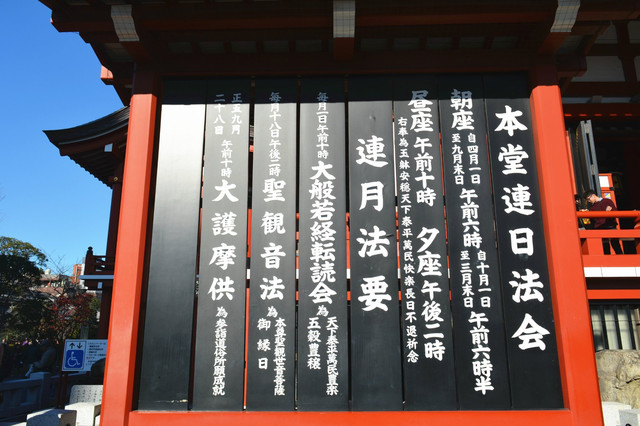 本堂連日法会
朝座 自四月一日 至九月末日 午前六時 自十月一日 至三月末日 午前六時半
昼座 午前十時 夕座 午後二時
右奉為玉躰安穏天下泰平萬民快楽長日不退祈念
連月法要
毎月一日午前十時 大般若経転読会 為 天下泰平萬民豊楽 五穀豊穣
毎月十八日午後二時 聖観音法 本尊聖観世音菩薩 御縁日
正五九月 二十八日 午前十時 大護摩供 為参詣道俗所願成就